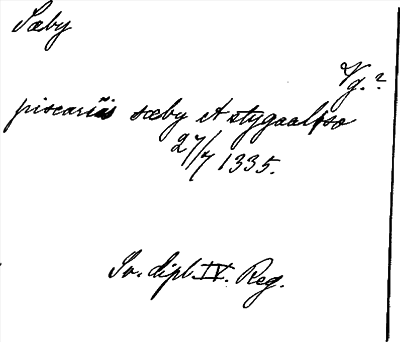 Sæby
Vg.?
piscariis sæby et stygaalsso
27/7 1335.
Sv. dipl. IV. Reg.